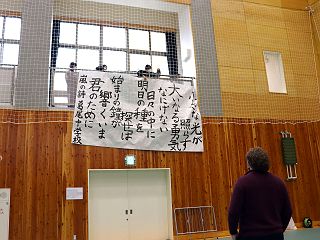 大いなる勇気
なにげない
日々の中に
明日の種を
探せば
始まりの鐘が
響くいま
君のために
風の詩 葛尾中学校